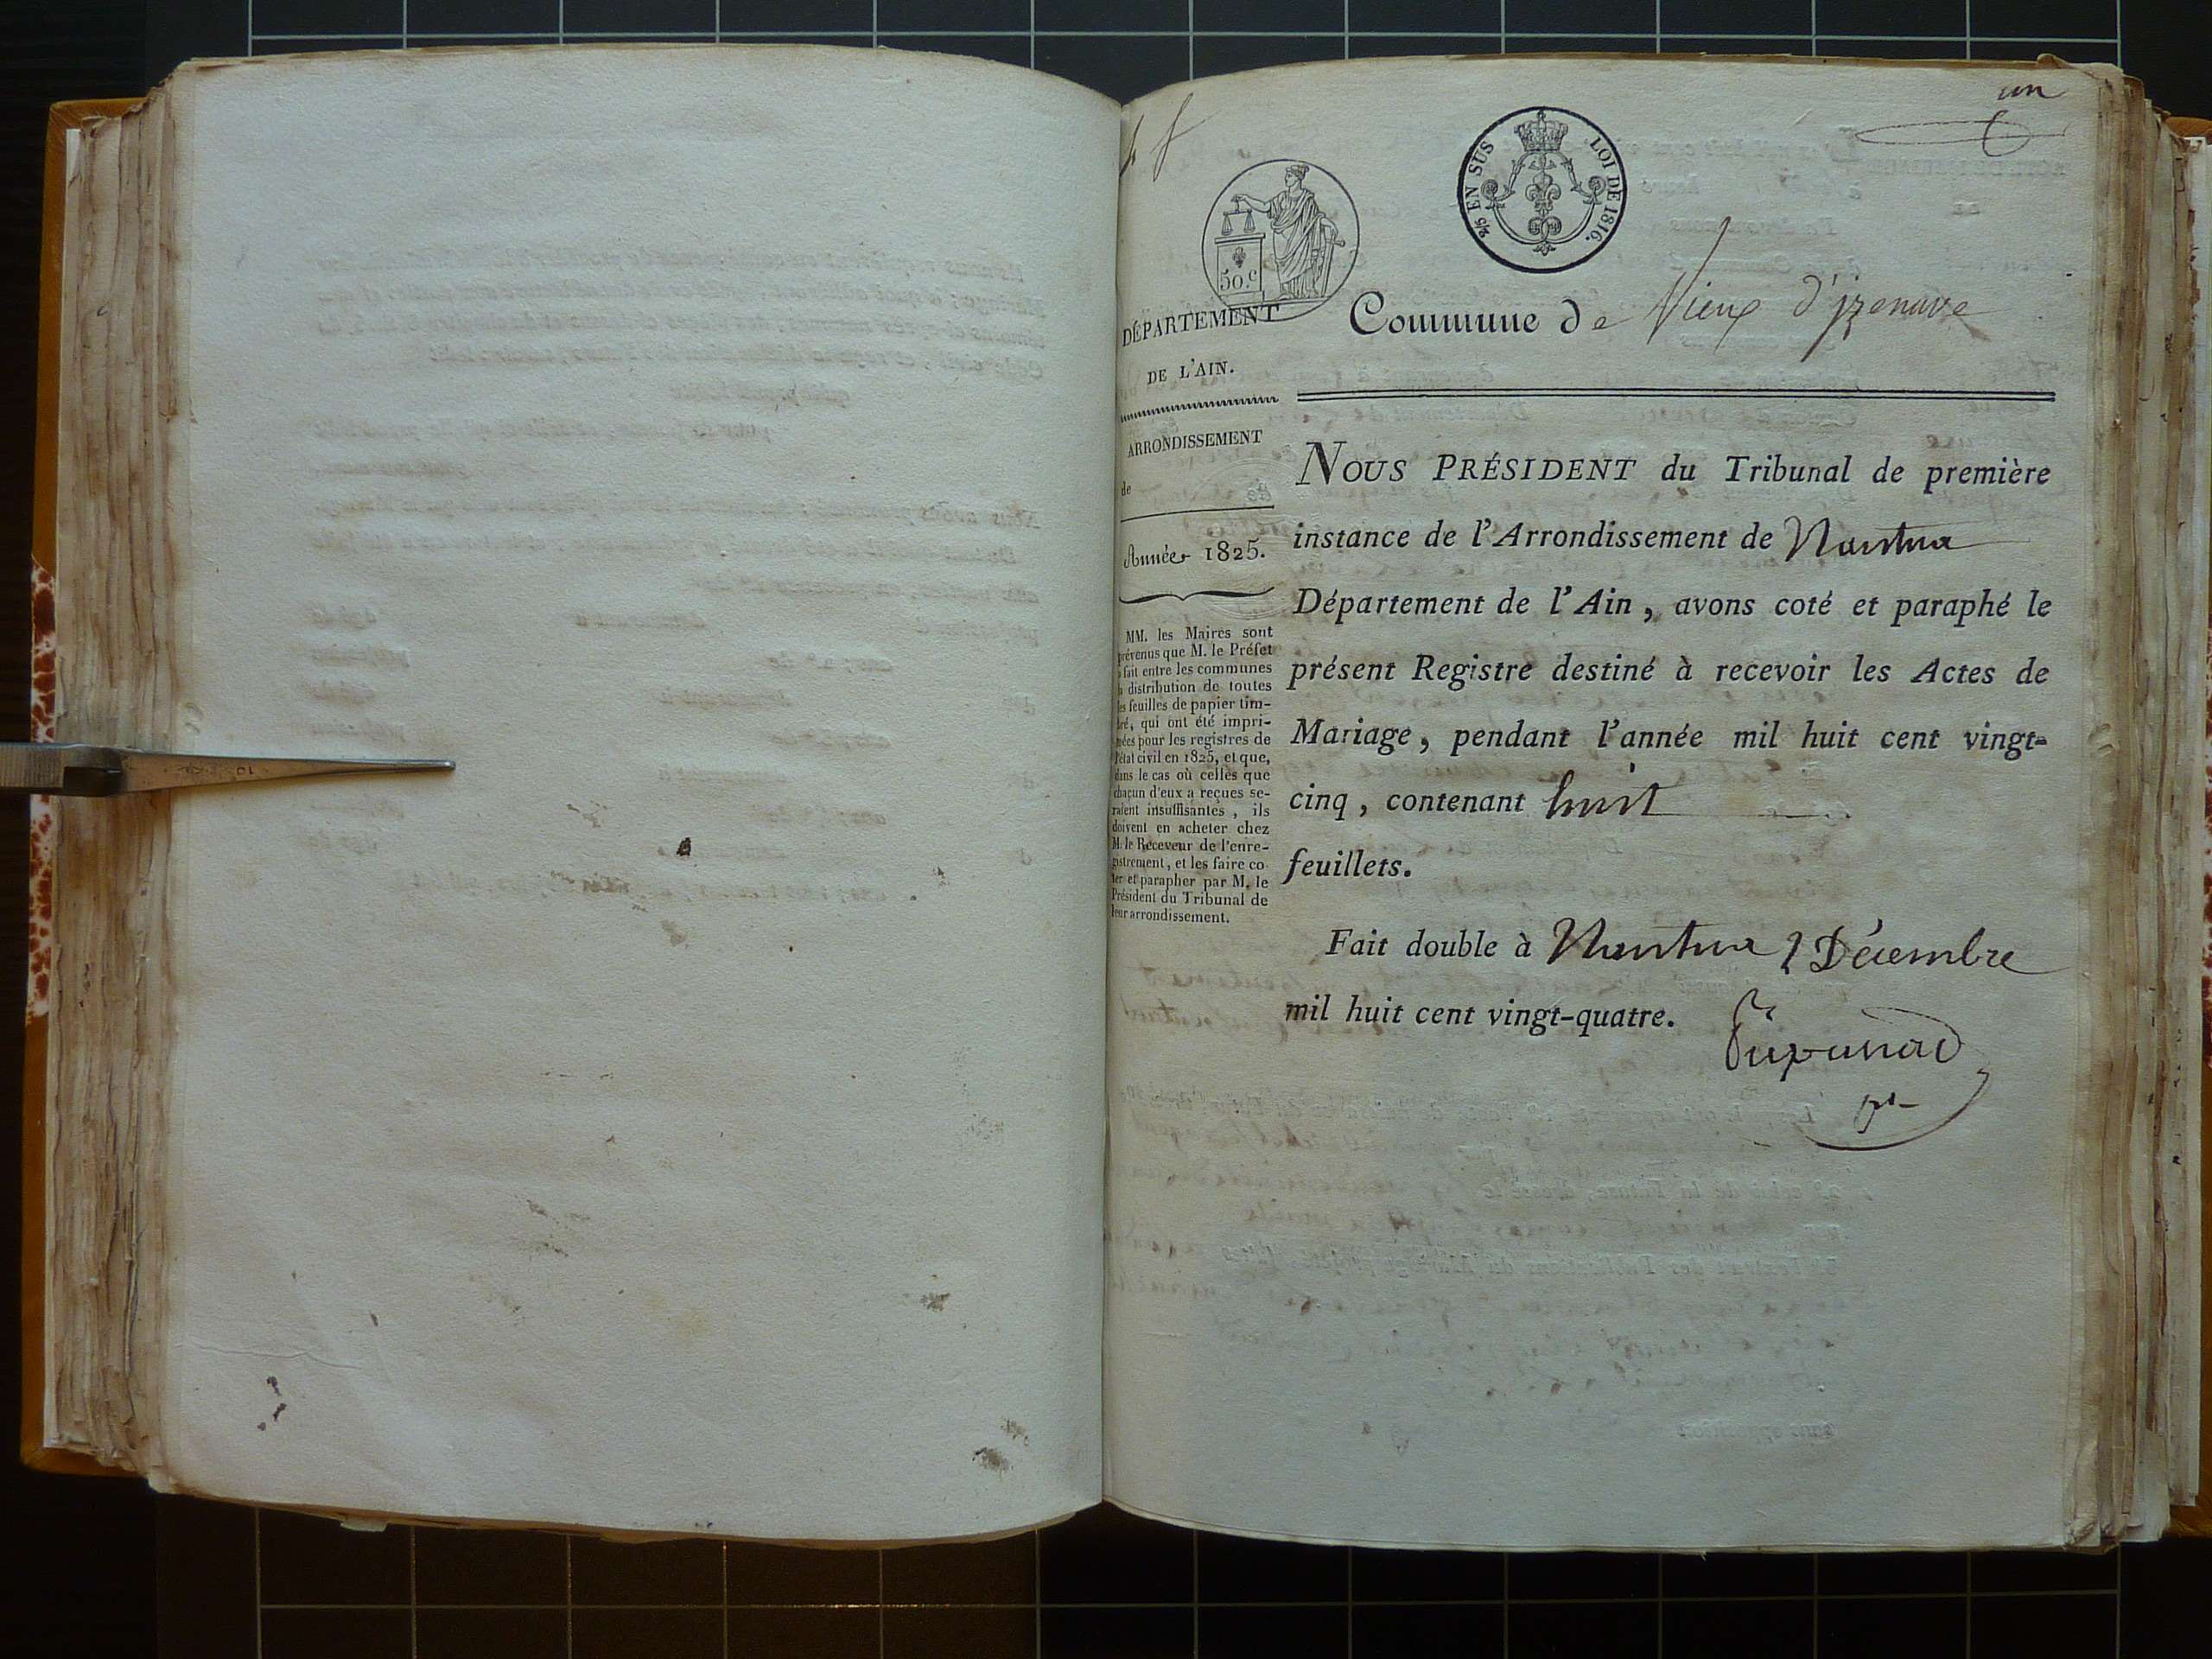 un
2/5 EN SUS LOI DE 1816.
50.c
DÉPARTEMENT
DE L'AIN.
ARRONDISSEMENT
de
Année 1825.
MM. les Maires sont
prévenus que M. le Préfet
a fait entre les communes
la distribution de toutes
les feuilles de papier tim-
bré, qui ont été impri-
mées pour les registres de
l'état civil en 1825, et que,
dans le cas où celles que
chacun d'eux a reçues se-
raient insuffisantes, ils
doivent en acheter chez
M. le Receveur de l'enre-
gistrement, et les faire co-
ter et parapher par M. le
Président du Tribunal de
leur arrondissement.
Commune de Vieux d'izenave
NOUS PRÉSIDENT du Tribunal de première
instance de l'Arrondissement de Nantua
Département de l'Ain, avons coté et paraphé le
présent Registre destiné à recevoir les Actes de
Mariage, pendant l'année mil huit cent vingt-
cinq, contenant huit
feuillets.
Fait double à Nantua 2 Décembre
mil huit cent vingt-quatre.